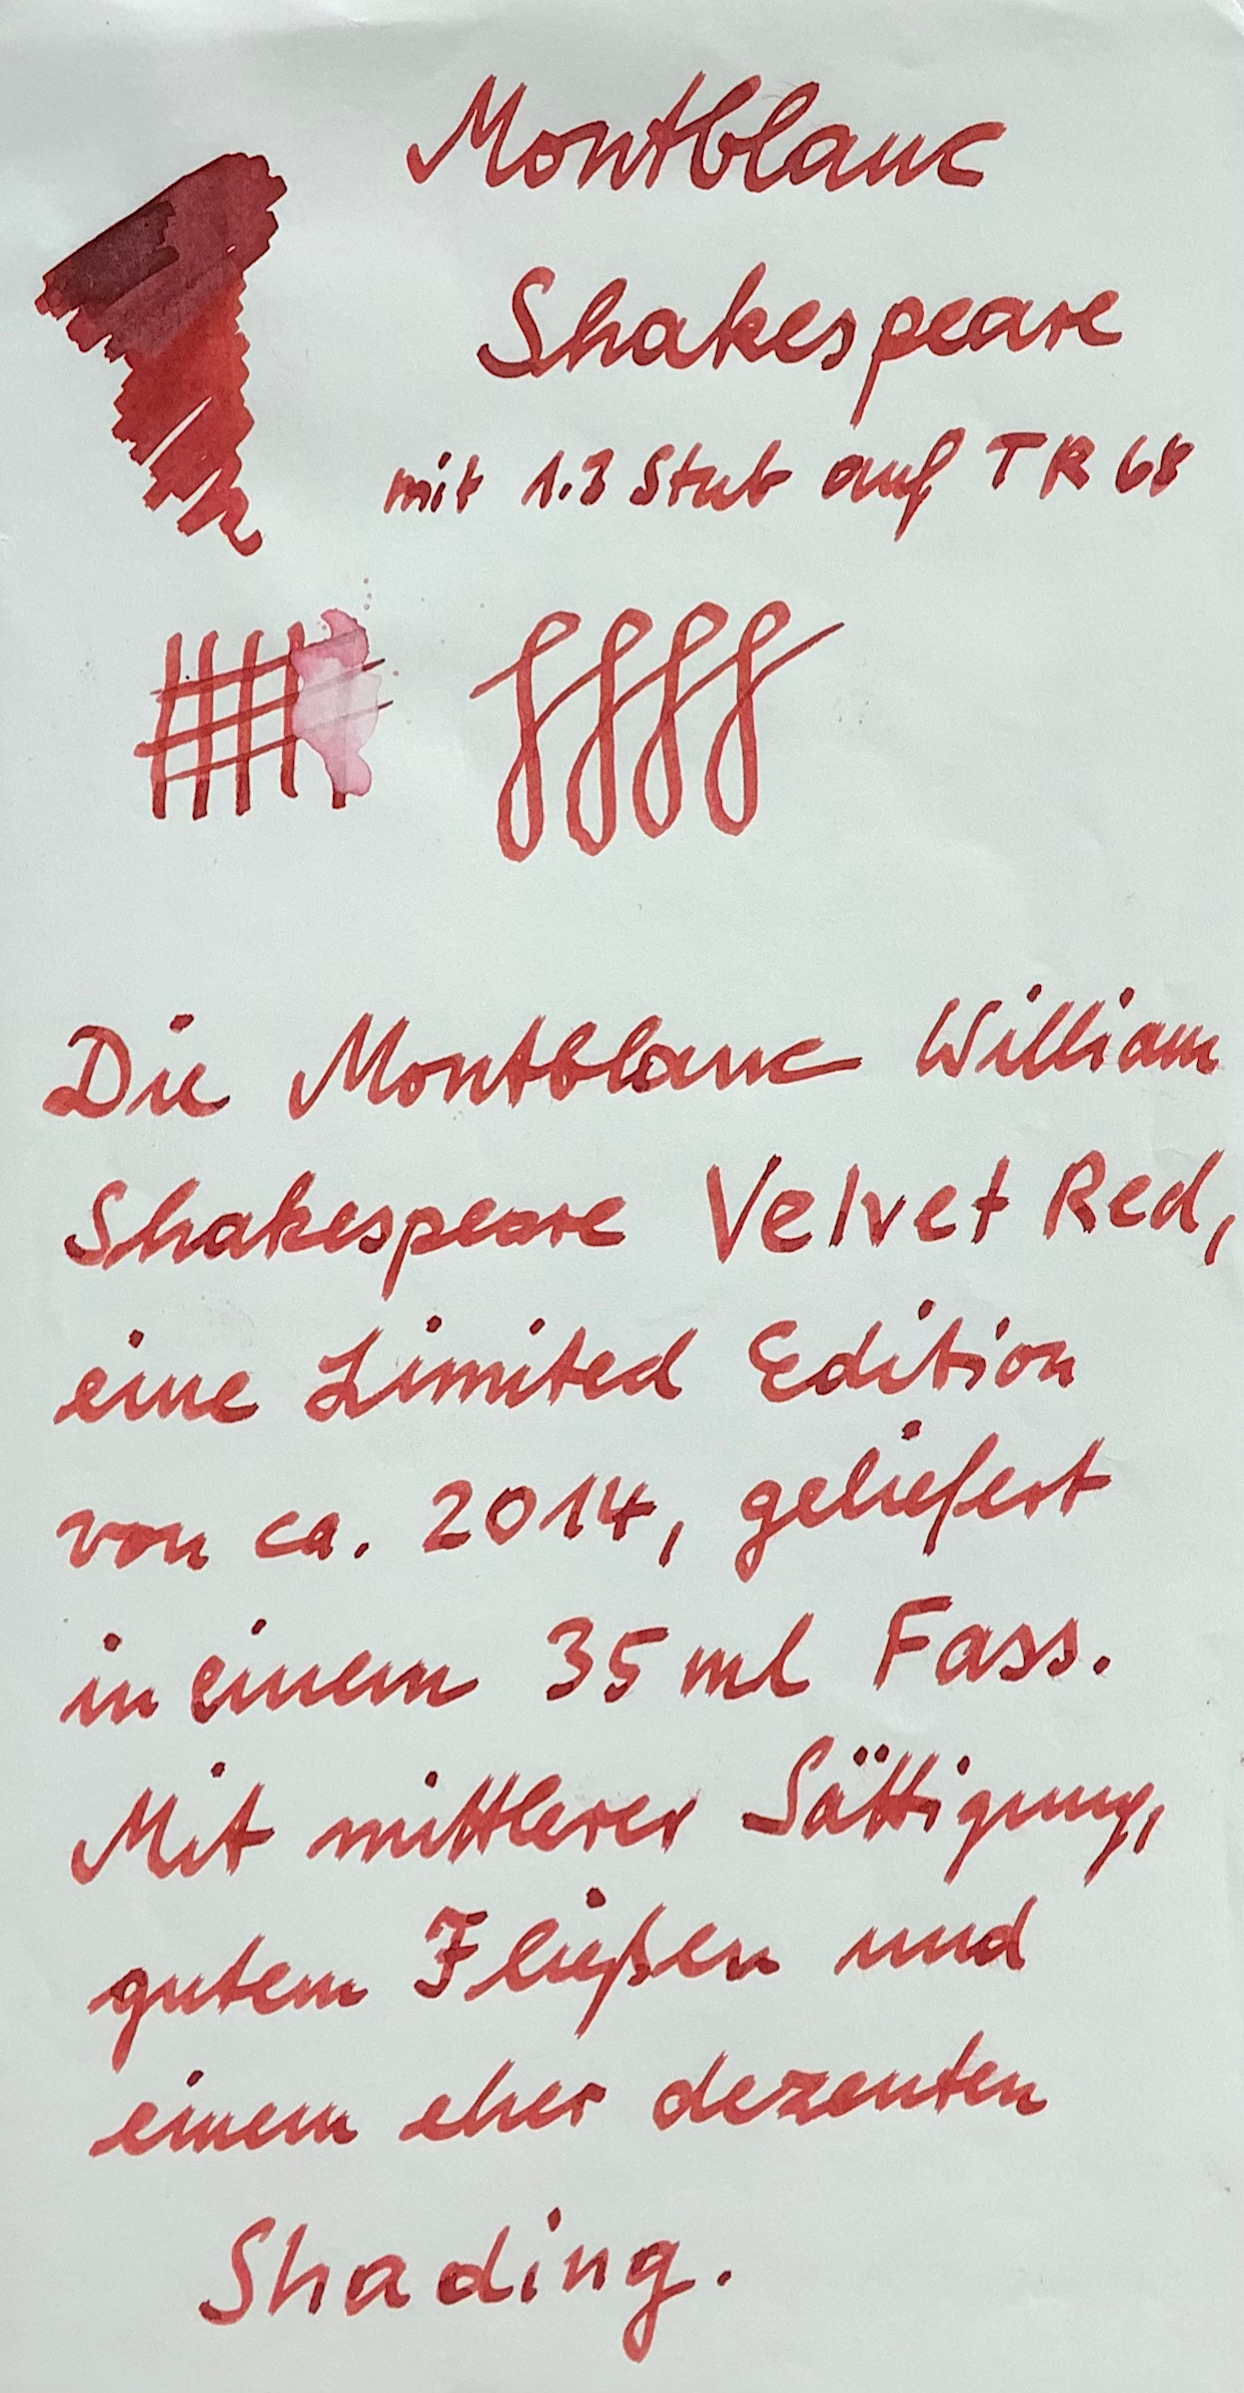 Montblanc
Shakespeare
mit 1.3 Stub auf TR 68
ffff
Die Montblanc William
Shakespeare Velvet Red,
eine Limited Edition
von ca. 2014, geliefert
in einem 35 ml Fass.
Mit mittlerer Sättigung,
gutem Fließen und
einem eher dezenten
Shading.